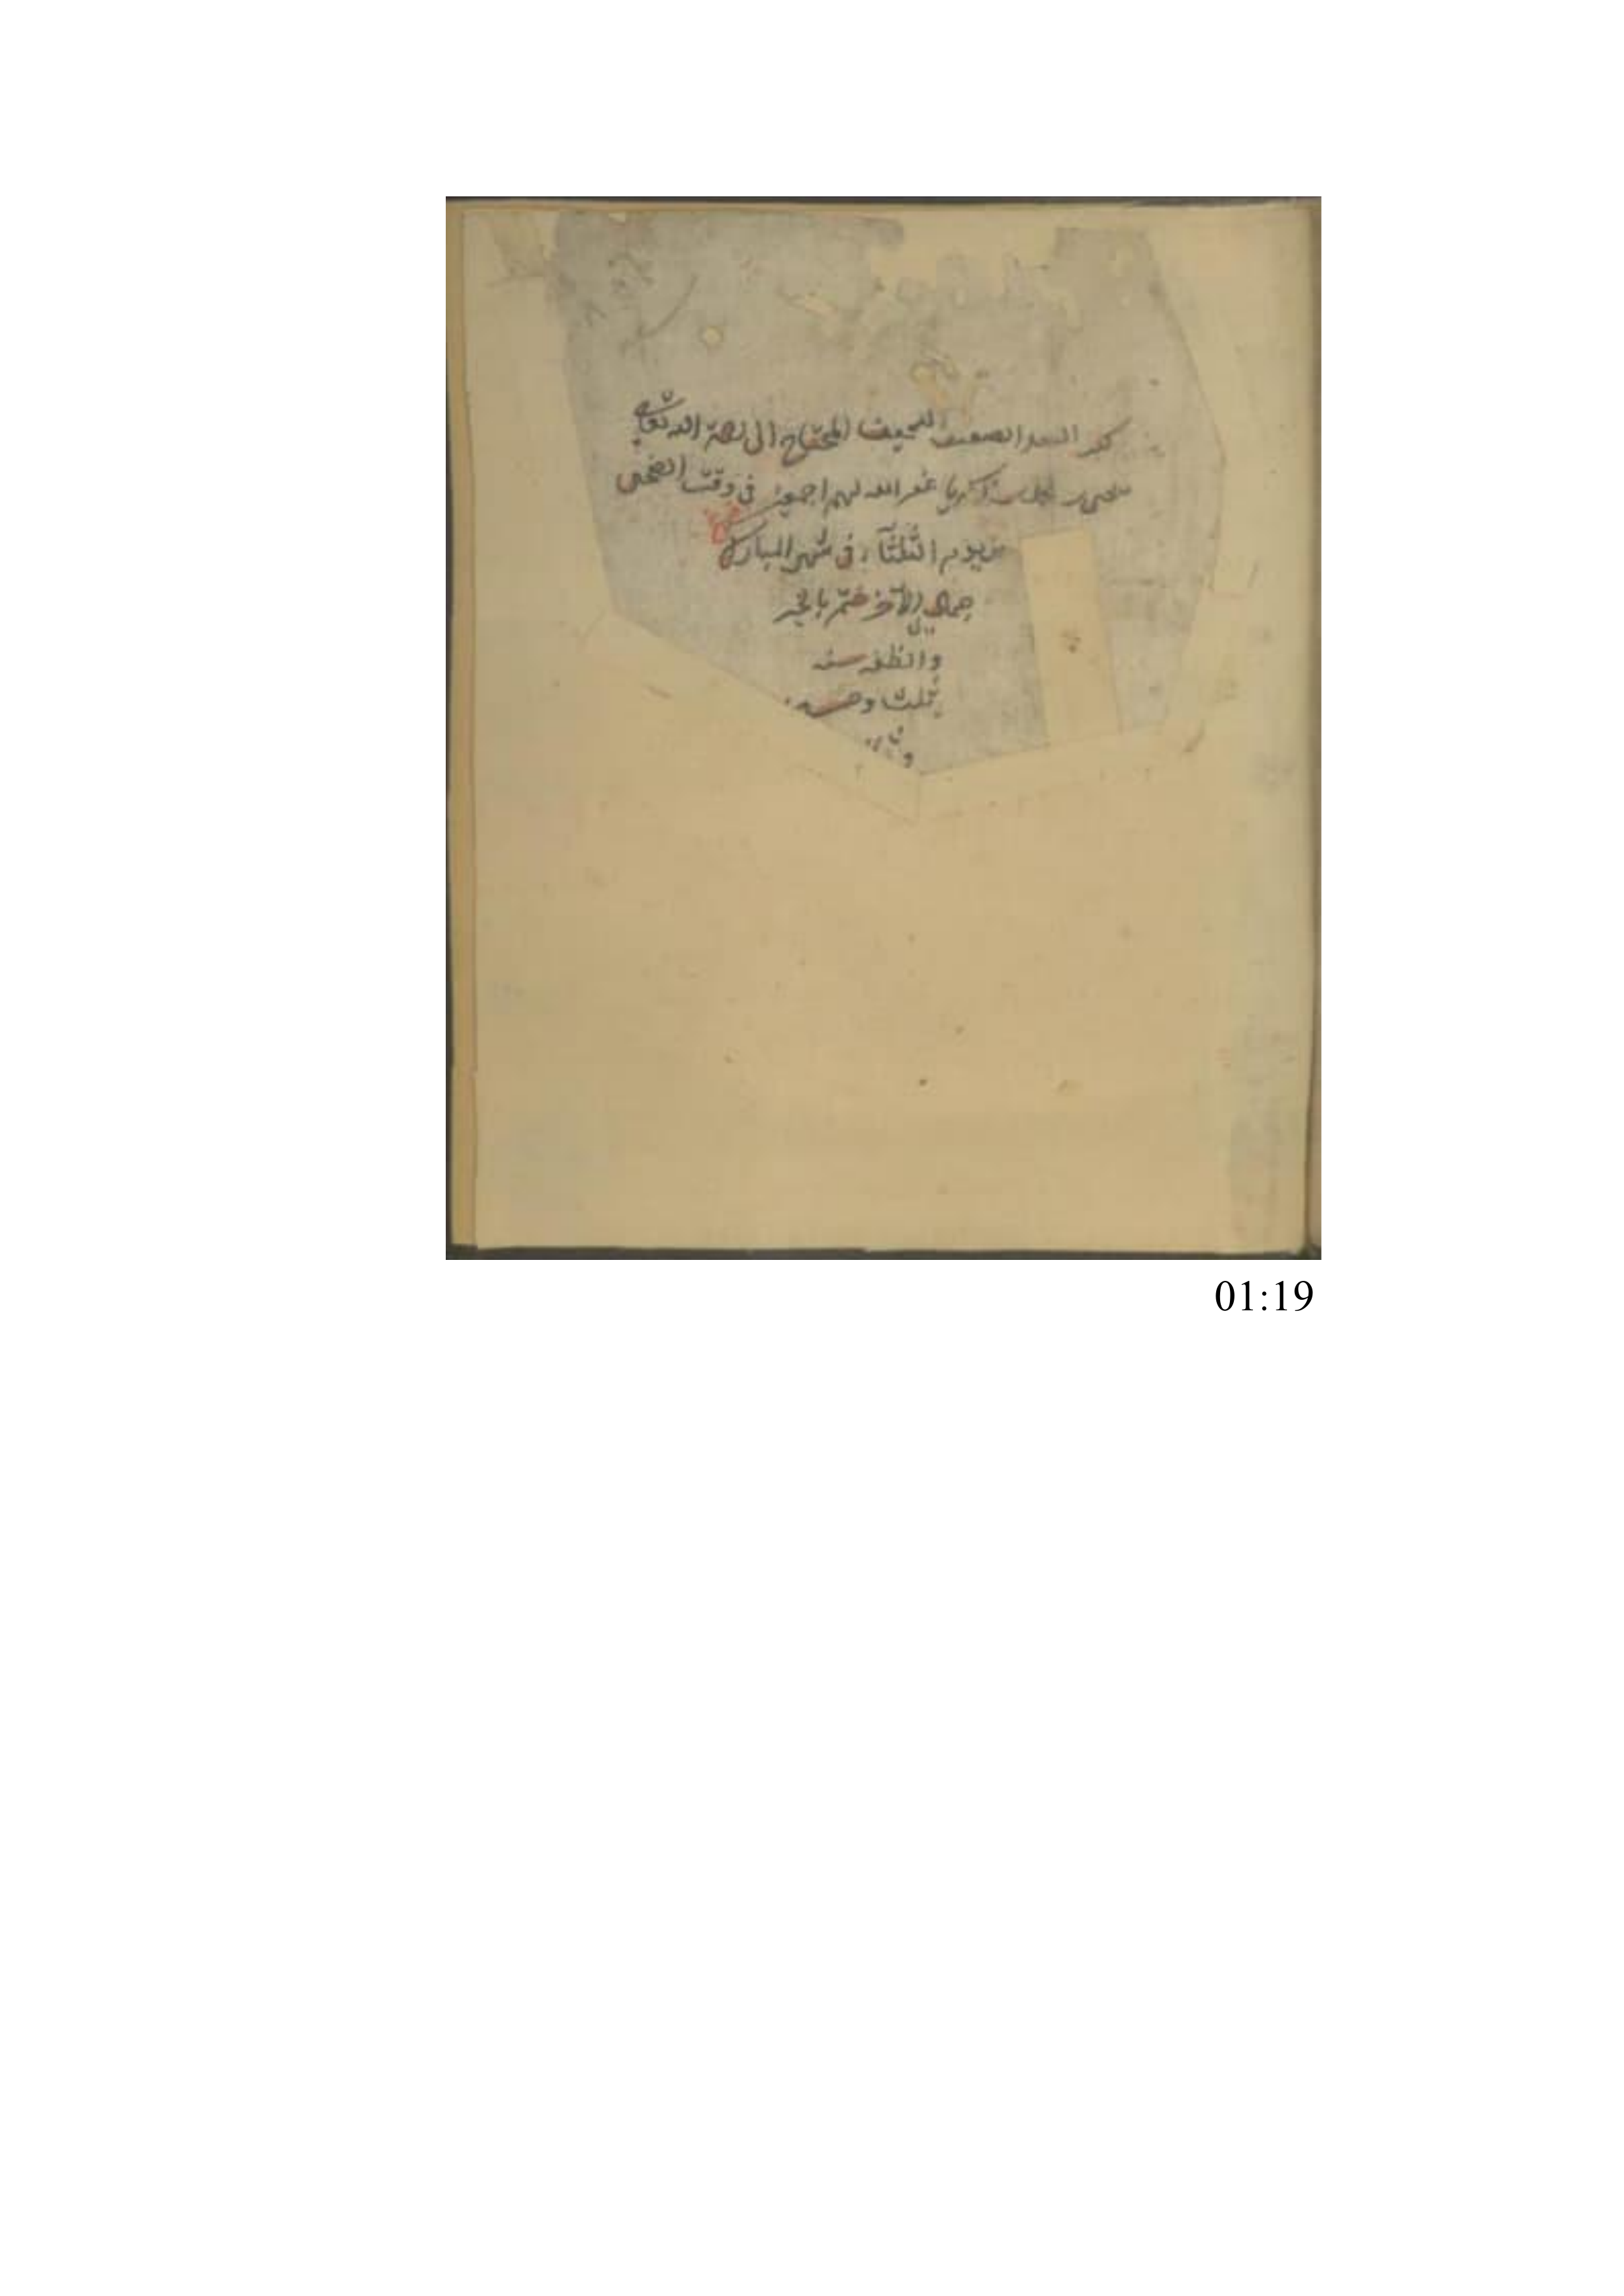 العبد الضعيف النحيف المحتاج الى رحمة الله تعالى
زكريا غفر الله لهم اجمعين فى وقت الضحى
من يوم الثلثآء فى شهر المبارك
جمادى الآخر ختم بالخير
والظفر سنه
ثلث وخمسين
01:19